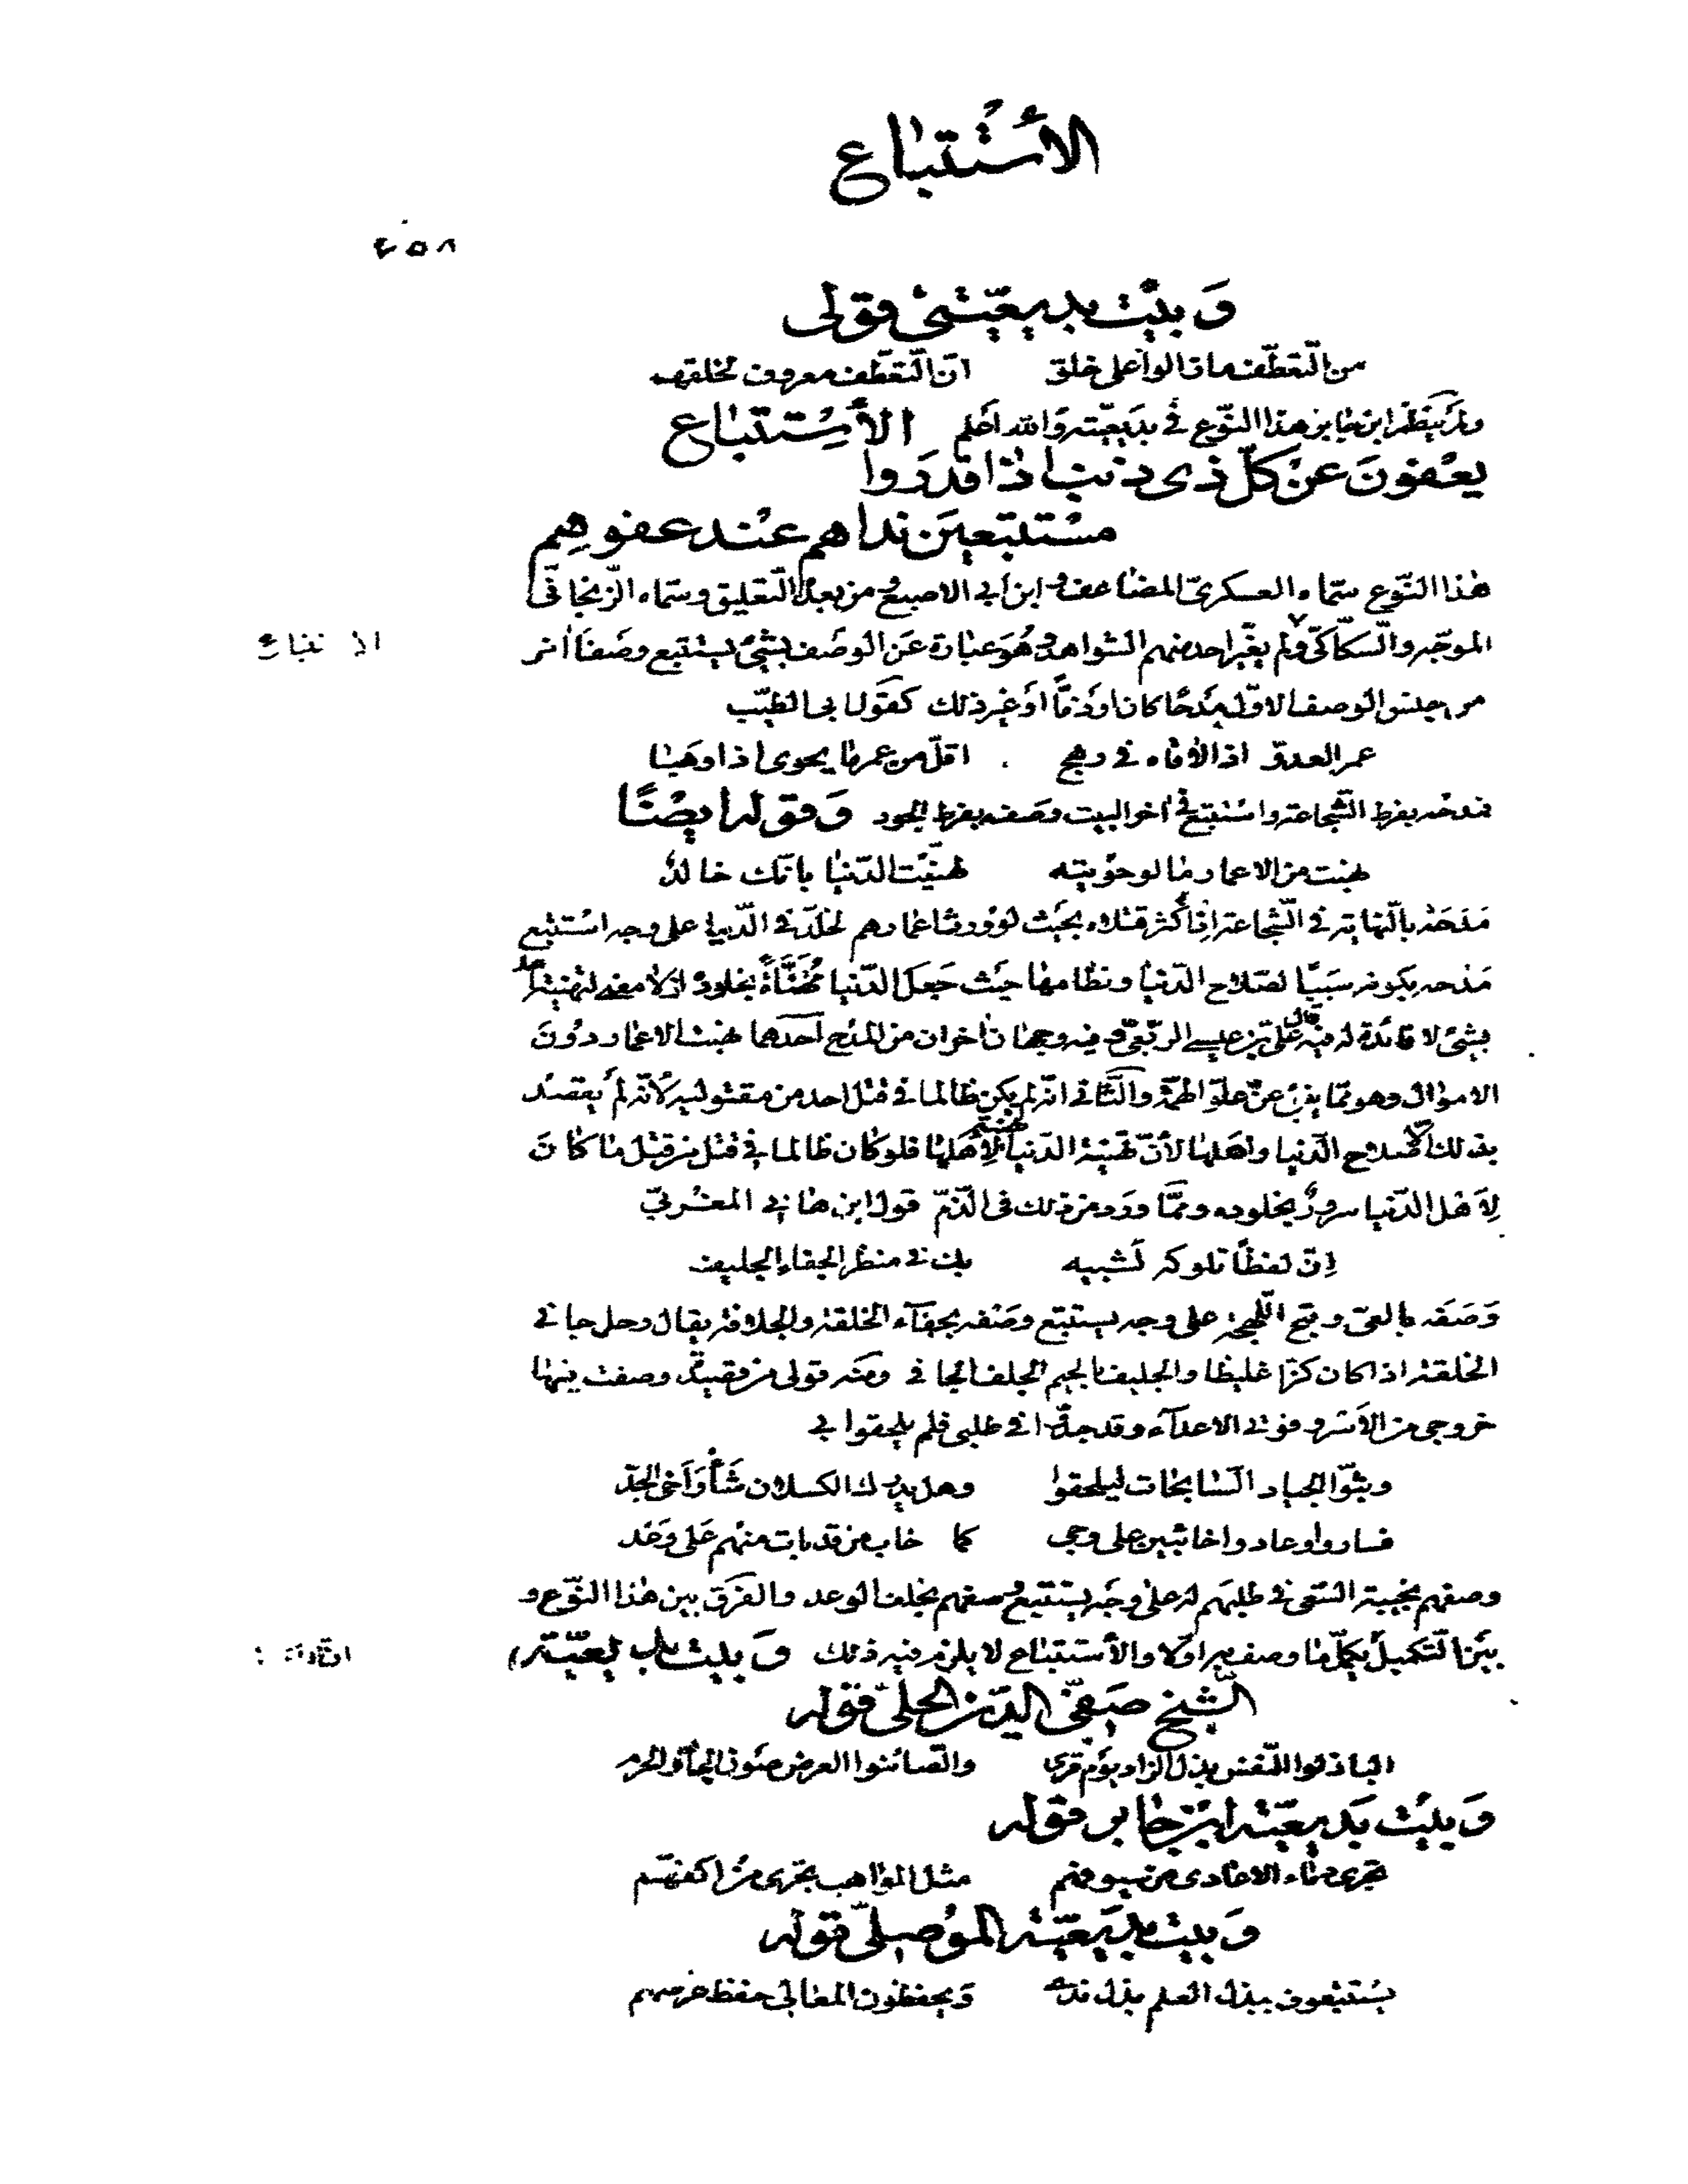 الأستتباع
٤٥٨
وَبيت بديعيّتي قولى
من التّعطّف ما قالوا على خلق انّ التّعطّف معروف بخلقهم
ولم ينظم ابن جابر هذا النّوع في بديعيّته والله أعلم الأستتباع
يعفون عن كلّ ذى ذنب اذا قدروا
مستتبعين نداهم عند عفوهم
هذا النّوع سمّاه العسكرىّ المضاعف وابن ابى الاصبع ومن بعده التّعليق وسمّاه الزّنجانى
الموجّه والسّكاكىّ ولم يغيّر احد منهم الشواهد وهو عبارة عن الوصف بشئ يستتبع وصفا اٰخر
الاستتباع
من جنس الوصف الاوّل مدحا كان او ذمّا او غير ذلك كقول ابى الطيّب
عمر العدوّ اذا لاقاه في رهج اقلّ من عمر ما يحوى اذا وهبا
فمدحه بفرط الشّجاعة واستتبع في اٰخر البيت وصفه بفرط الجود وَقوله ايضًا
نهبت من الاعمار ما لو حويته لهنّيت الدّنيا بانّك خالد
مدحه بالنّهاية في الشّجاعة اذا كثر قتلاه بحيث لو ورث اعمارهم لخلّد في الدّنيا على وجه استتبع
مدحه بكونه سببا لصلاح الدّنيا ونظامها حيث جعل الدّنيا مهنّأة بخلوده اذ لا معنى لتهنئة احد
بشئ لا فائدة له فيه قال علىّ بن عيسى الرّبعىّ وفيه وجهان اٰخران من المدح احدهما نهب الاعمار دون
الاموال وهو ممّا ينبئ عن علوّ الهمّة والثّانى انّه لم يكن ظالما في قتل احد من مقتوليه لانّه لم يقصد
بذلك الّا صلاح الدّنيا واهلها لأنّ تهنئة الدّنيا تهنئة لأهلها فلو كان ظالما في قتل من قتل ما كان
لأهل الدّنيا سرور بخلوده وممّا ورد من ذلك فى الذّمّ قول ابن هانى المغربىّ
إنّ لفظًا تلوكه لشبيه بك في منظر الجفاء الجليف
وَصَفَه بالعىّ وقبح اللّهجة على وجه يستتبع وصفه بجفآء الخلقة والجلافة يقال رجل جافى
الخلقة اذا كان كزّا غليظا والجليف بالجيم الجلف الجافى ومنه قولى من قصيدة وصفت فيها
خروجى من الاسر وفوتى الاعدآء وقد جدّوا في طلبى فلم يلحقوا بى
وبثّوا الجياد السّابحات ليلحقوا وهل يدرك الكسلان شأو أخى الجدّ
فساروا وعادوا خائبين على وجى كما خاب من قد بات منهم على وعد
وصفهم بخيبة السّعى في طلبهم له على وجه يستتبع وصفهم بخلف الوعد والفرق بين هذا النّوع و
بين التّكميل يكمّل ما وصف به اوّلا والأستتباع لا يلزم فيه ذلك وَبيت بديعيّته
الشّيخ صفىّ الدّين الحلّىّ قوله
الباذلوا النّفس بذل الزّاد يوم قرى والصّائنوا العرض صون الجار والحرم
وَبيت بديعيّة ابن جابر قوله
تجرى دماء الاعادى من سيوفهم مثل المواهب تجرى من اكفّهم
وَبيت بديعيّة الموصلىّ قوله
يستتبعون ببذل العلم بذل ندى ويحفظون المعالى حفظ عرضهم